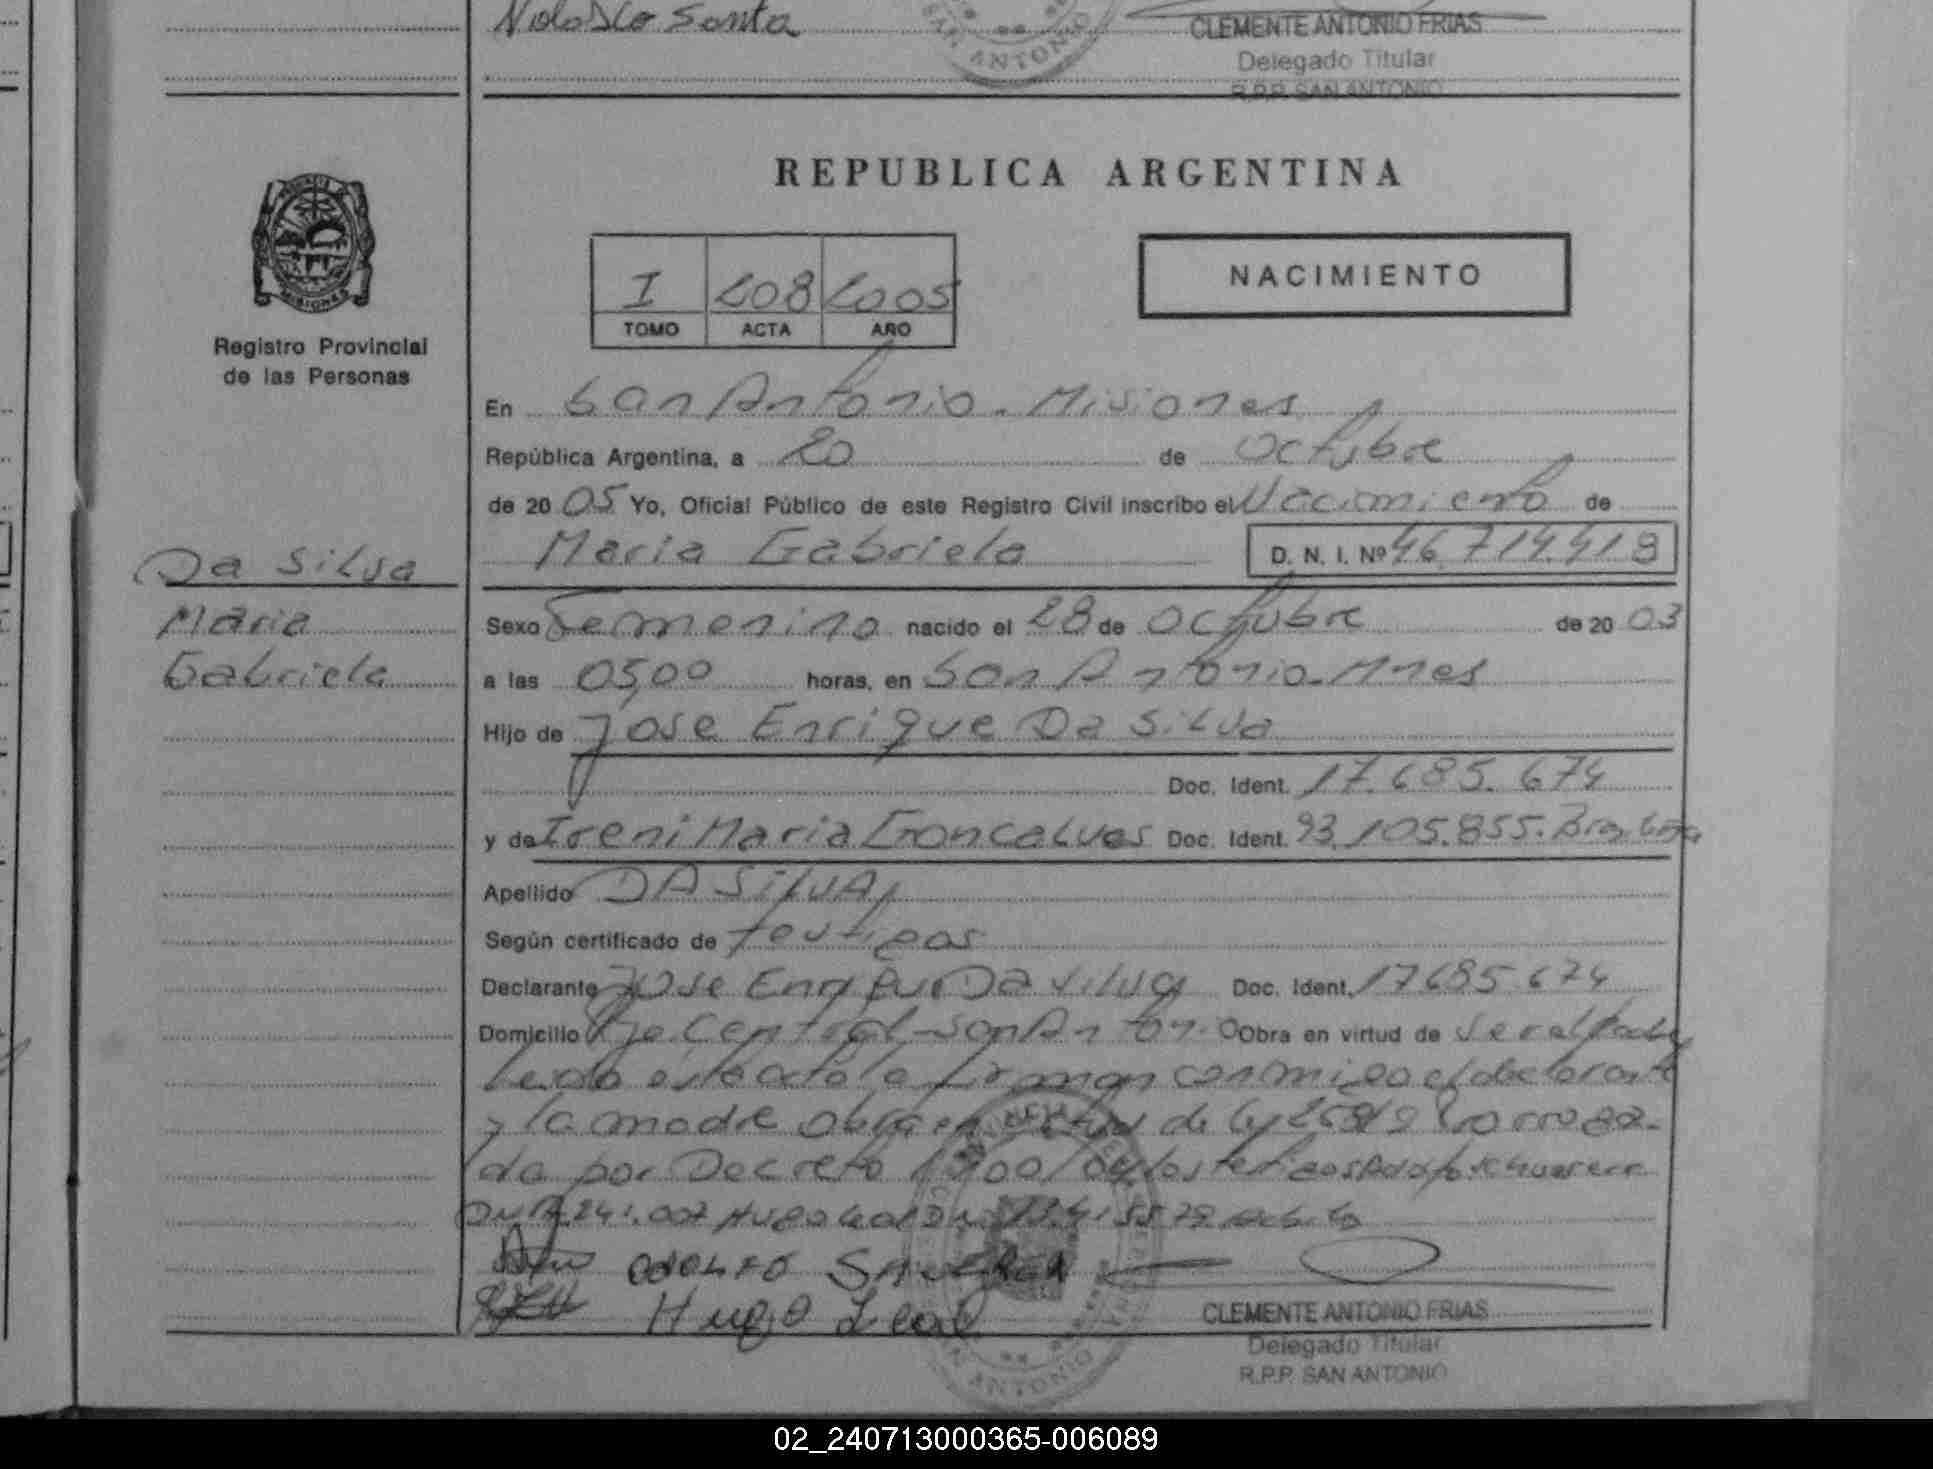 Nolasco Santa
SAN ANTONIO
CLEMENTE ANTONIO FRIAS
Delegado Titular
R.P.P. SAN ANTONIO
REPUBLICA ARGENTINA
MISIONES
Registro Provincial
de las Personas
I 208 2005
TOMO ACTA AÑO
NACIMIENTO
En San Antonio. Misiones
República Argentina, a 20 de Octubre
de 20 05 Yo, Oficial Público de este Registro Civil inscribo el Nacimiento de
Maria Gabriela D. N. I. Nº 46.714.419
Da Silva
Maria
Gabriela
Sexo Femenino nacido el 28 de Octubre de 20 03
a las 05,00 horas, en San Antonio. Mnes
Hijo de Jose Enrique Da Silva
Doc. Ident. 17.685.674
y de Ireni Maria Goncalves Doc. Ident. 93.105.855.
Apellido DA SILVA
Según certificado de testigos
Declarante Jose Enrique Da Silva Doc. Ident. 17685.674
Domicilio Central San Antonio Obra en virtud de ser el Padre
Leida este acta la firman conmigo el declarante
y la madre Obra en virtud de Ley 25819 Prorroga-
da por Decreto los testigos
DNI 241.007 Hugo Leal
ADOLFO
Hugo Leal
CLEMENTE ANTONIO FRIAS
Delegado Titular
R.P.P. SAN ANTONIO
SAN ANTONIO
02_240713000365-006089